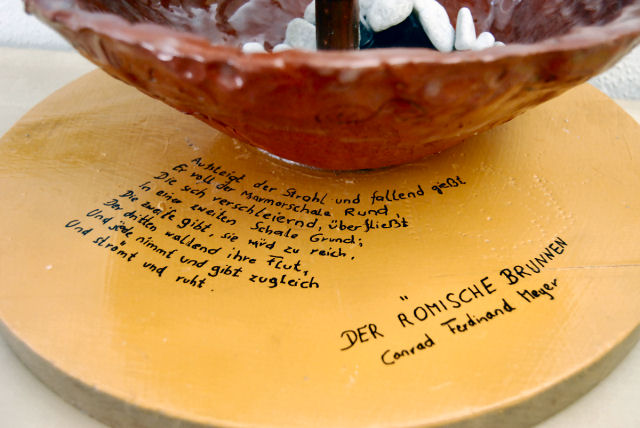 Aufsteigt der Strahl und fallend gießt
Er voll der Marmorschale Rund,
Die sich verschleiernd, überfließt
In einer zweiten Schale Grund;
Die zweite gibt, sie wird zu reich,
Der dritten wallend ihre Flut,
Und jede nimmt und gibt zugleich
Und strömt und ruht.
DER RÖMISCHE BRUNNEN
Conrad Ferdinand Meyer